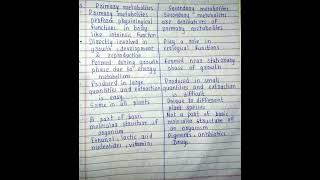 Primary metabolites
Secondary metabolites
Primary metabolites
perform physiological
functions in body
like intrinsic function
Secondary metabolites
are derivatives of
primary metabolites
Directly involved in
growth, development
& reproduction
Play a role in
ecological functions
Formed during growth
phase due to energy
metabolism
Formed near stationary
phase of growth
Produced in large
quantities and extraction
is easy
Produced in small
quantities and extraction
is difficult
Same in all plants
Unique to different
plant species
A part of basic
molecular structure of
organism
Not a part of basic
molecular structure of
an organism
Ethanol, lactic acid
nucleotides, vitamins
Pigments, antibiotics
Drugs